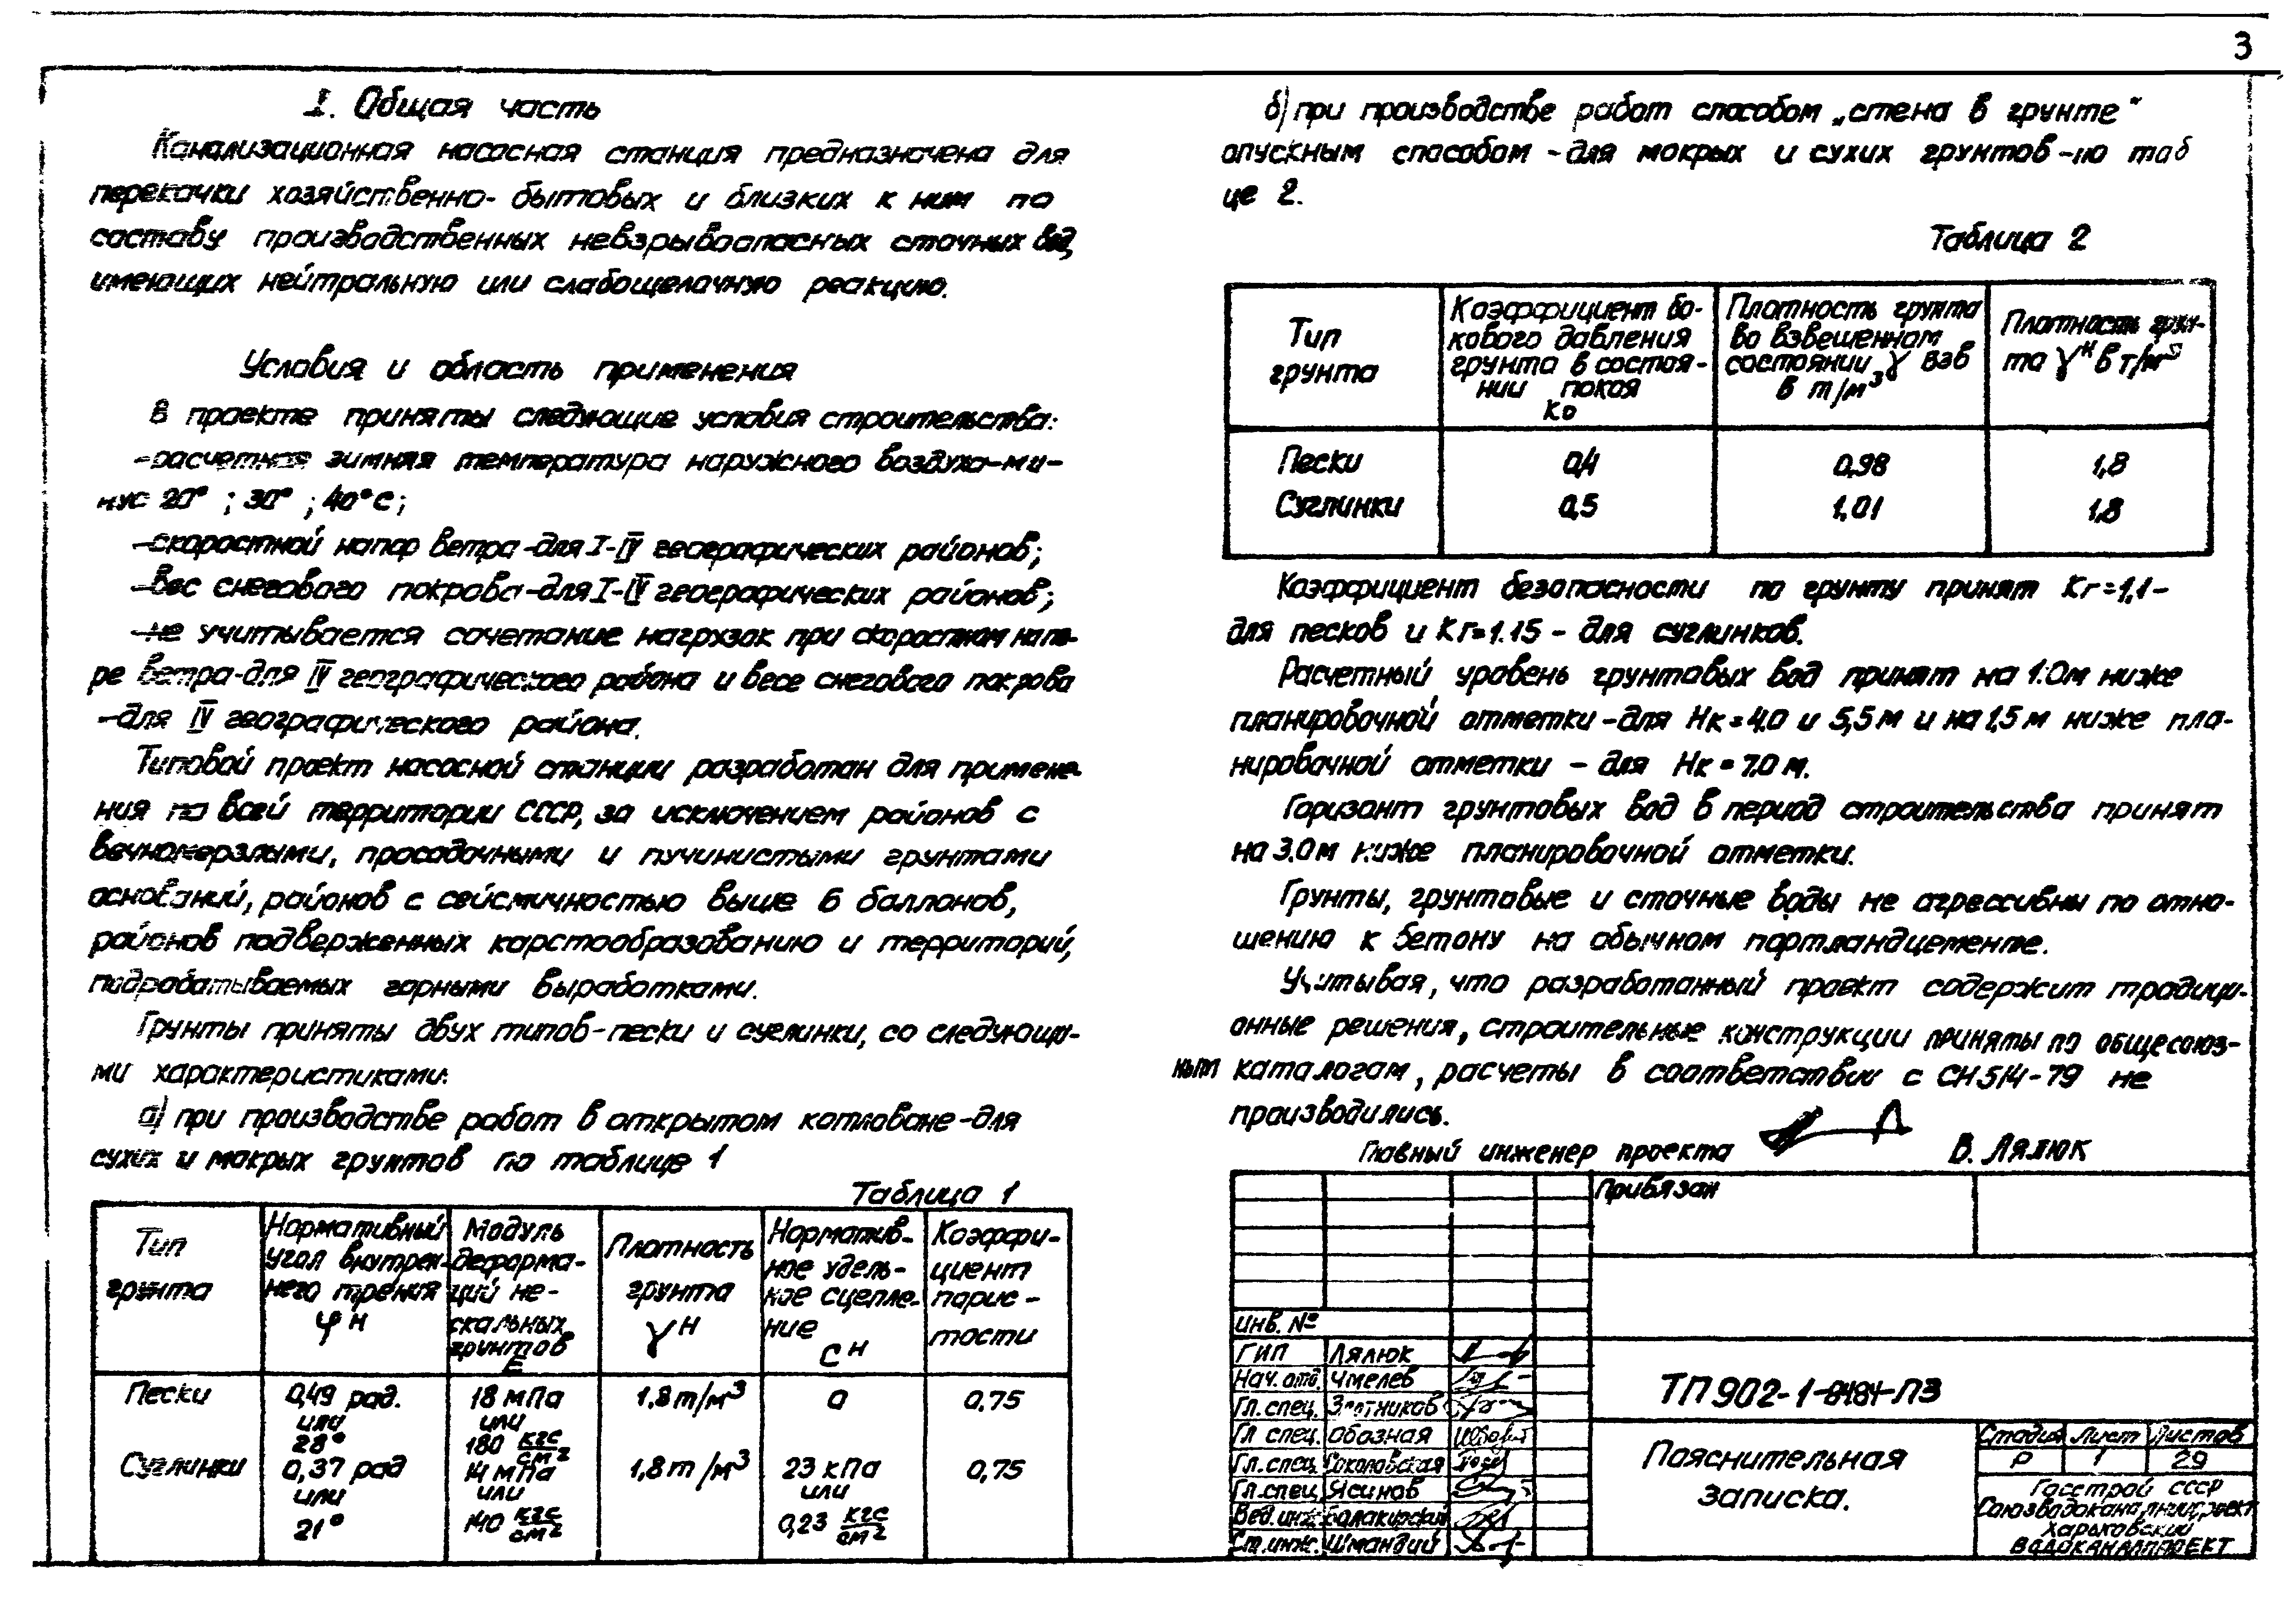 3
I. Общая часть
Канализационная насосная станция предназначена для
перекачки хозяйственно-бытовых и близких к ним по
составу производственных невзрывоопасных сточных вод,
имеющих нейтральную или слабощелочную реакцию.
Условия и область применения
В проекте приняты следующие условия строительства:
-расчетная зимняя температура наружного воздуха-ми-
нус 20° ; 30° ; 40°С;
-скоростной напор ветра-для I-IV географических районов;
-вес снегового покрова-для I-IV географических районов;
-не учитывается сочетание нагрузок при скоростном напо-
ре ветра-для IV географического района и весе снегового покрова
-для IV географического района.
Типовой проект насосной станции разработан для примене-
ния по всей территории СССР, за исключением районов с
вечномерзлыми, просадочными и пучинистыми грунтами
оснований, районов с сейсмичностью выше 6 баллонов,
районов подверженных карстообразованию и территорий,
подрабатываемых горными выработками.
Грунты приняты двух типов-пески и суглинки, со следующи-
ми характеристиками:
а) при производстве работ в открытом котловане-для
сухих и мокрых грунтов по таблице 1
Таблица 1
Тип грунта
Нормативный угол внутрен- него трения φн
Модуль деформа- ций не- скальных грунтов Е
Плотность грунта γн
Норматив- ное удель- ное сцепле- ние Сн
Коэффи- циент порис- тости
Пески 0,49 рад. или 28° 18 мПа или 180 кгс/см2 1,8 т/м3 0 0,75
Суглинки 0,37 рад или 21° 14 мПа или 140 кгс/см2 1,8 т/м3 23 кПа или 0,23 кгс/см2 0,75
б) при производстве работ способом „стена в грунте"
опускным способом-для мокрых и сухих грунтов-по таб
це 2.
Таблица 2
Тип грунта
Коэффициент бо- кового давления грунта в состоя- нии покоя Ко
Плотность грунта во взвешенном состоянии γ взв в т/м3
Плотность грун- та γн в т/м3
Пески 0,4 0,98 1,8
Суглинки 0,5 1,01 1,8
Коэффициент безопасности по грунту принят Кг=1,1-
для песков и Кг=1.15 - для суглинков.
Расчетный уровень грунтовых вод принят на 1.0м ниже
планировочной отметки-для Нк=4.0 и 5,5м и на 1,5м ниже пла-
нировочной отметки - для Нк=7.0 м.
Горизонт грунтовых вод в период строительства принят
на 3.0м ниже планировочной отметки.
Грунты, грунтовые и сточные воды не агрессивны по отно-
шению к бетону на обычном портландцементе.
Учитывая, что разработанный проект содержит традици-
онные решения, строительные конструкции приняты по общесоюз-
ным каталогам, расчеты в соответствии с СН514-79 не
производились.
Главный инженер проекта В. Лялюк
Привязан
инв. №
ГИП Лялюк
Нач.отд. Чмелев
Гл.спец. Злотников
Гл спец. Обозная
Гл.спец. Соколовская
Гл.спец. Ясинов
Вед.инж. Балакирский
Ст.инж. Шмандий
ТП902-1-84.84-ПЗ
Пояснительная
записка.
Стадия Лист Листов
Р 1 29
Госстрой СССР
Союзводоканалниипроект
Харьковский
ВОДОКАНАЛПРОЕКТ